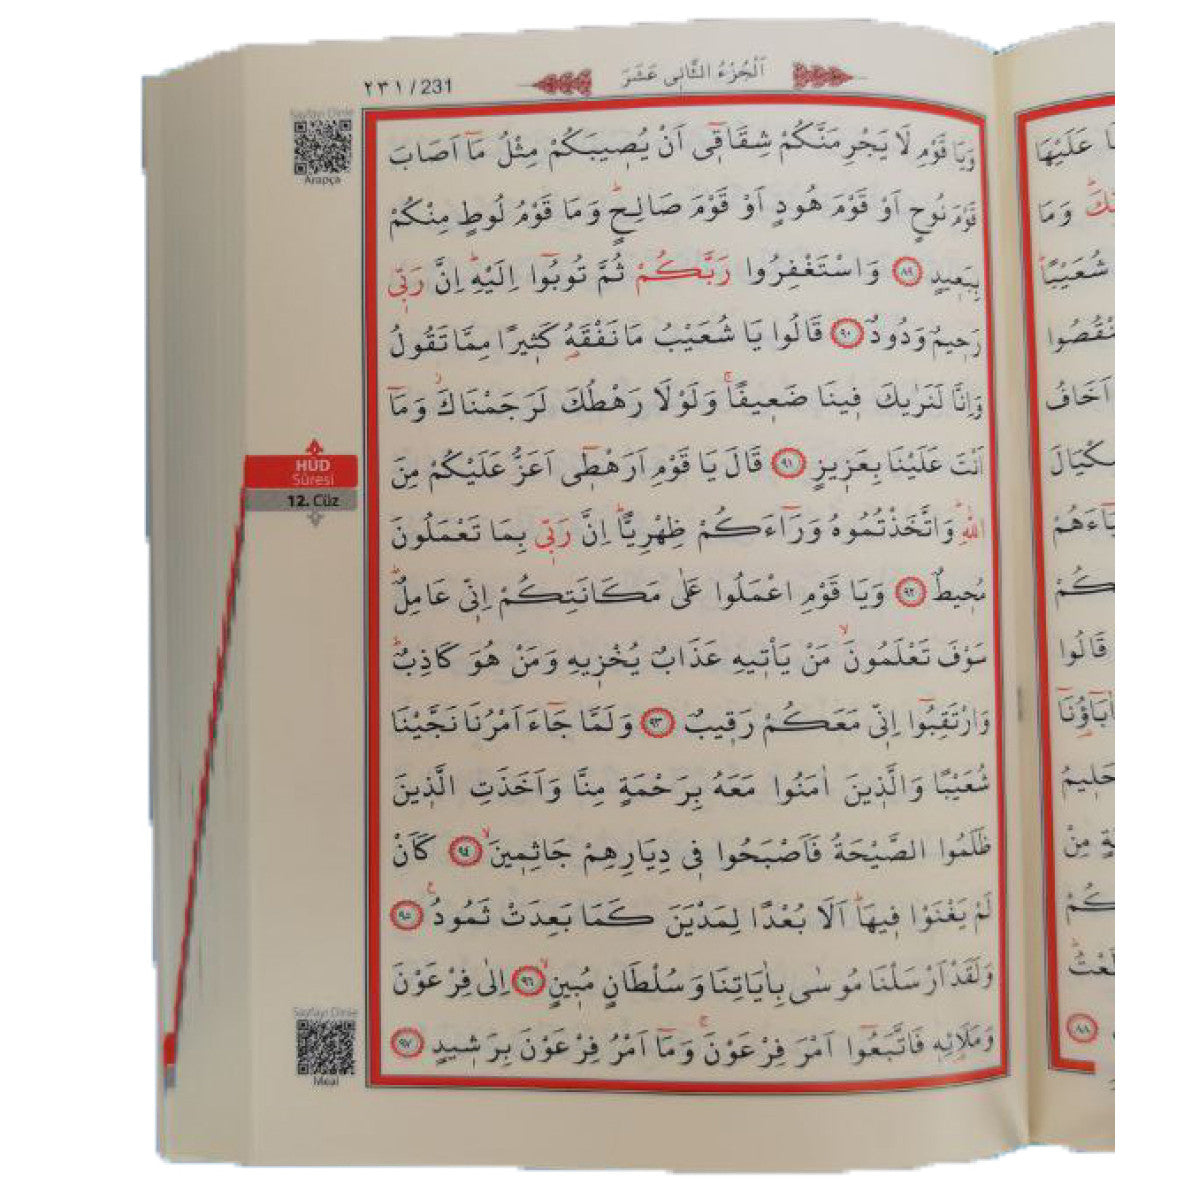 اَلْجُزْءُ الثَّانِى عَشَرَ
٢٣١ / 231
Sayfayı Dinle
Arapça
HÛD
Sûresi
12. Cüz
Sayfayı Dinle
Meal
وَيَا قَوْمِ لَا يَجْرِمَنَّكُمْ شِقَاقٖٓى اَنْ يُصٖيبَكُمْ مِثْلُ مَٓا اَصَابَ
قَوْمَ نُوحٍ اَوْ قَوْمَ هُودٍ اَوْ قَوْمَ صَالِحٍؕ وَمَا قَوْمُ لُوطٍ مِنْكُمْ
بِبَعٖيدٍ ٨٩ وَاسْتَغْفِرُوا رَبَّكُمْ ثُمَّ تُوبُٓوا اِلَيْهِؕ اِنَّ رَبّٖى
رَحٖيمٌ وَدُودٌ ٩٠ قَالُوا يَا شُعَيْبُ مَا نَفْقَهُ كَثٖيرًا مِمَّا تَقُولُ
وَاِنَّا لَنَرٰيكَ فٖينَا ضَعٖيفًاۚ وَلَوْلَا رَهْطُكَ لَرَجَمْنَاكَؗ وَمَٓا
اَنْتَ عَلَيْنَا بِعَزٖيزٍ ٩١ قَالَ يَا قَوْمِ اَرَهْطٖٓى اَعَزُّ عَلَيْكُمْ مِنَ
اللّٰهِؕ وَاتَّخَذْتُمُوهُ وَرَٓاءَكُمْ ظِهْرِيًّاؕ اِنَّ رَبّٖى بِمَا تَعْمَلُونَ
مُحٖيطٌ ٩٢ وَيَا قَوْمِ اعْمَلُوا عَلٰى مَكَانَتِكُمْ اِنّٖى عَامِلٌؕ
سَوْفَ تَعْلَمُونَۙ مَنْ يَاْتٖيهِ عَذَابٌ يُخْزٖيهِ وَمَنْ هُوَ كَاذِبٌؕ
وَارْتَقِبُٓوا اِنّٖى مَعَكُمْ رَقٖيبٌ ٩٣ وَلَمَّا جَٓاءَ اَمْرُنَا نَجَّيْنَا
شُعَيْبًا وَالَّذٖينَ اٰمَنُوا مَعَهُ بِرَحْمَةٍ مِنَّا وَاَخَذَتِ الَّذٖينَ
ظَلَمُوا الصَّيْحَةُ فَاَصْبَحُوا فٖى دِيَارِهِمْ جَاثِمٖينَۙ ٩٤ كَاَنْ
لَمْ يَغْنَوْا فٖيهَاؕ اَلَا بُعْدًا لِمَدْيَنَ كَمَا بَعِدَتْ ثَمُودُࣖ ٩٥
وَلَقَدْ اَرْسَلْنَا مُوسٰى بِاٰيَاتِنَا وَسُلْطَانٍ مُبٖينٍۙ ٩٦ اِلٰى فِرْعَوْنَ
وَمَلَائِهٖ فَاتَّبَعُٓوا اَمْرَ فِرْعَوْنَۚ وَمَٓا اَمْرُ فِرْعَوْنَ بِرَشٖيدٍ ٩٧
عَلَيْهَا
وَمَا
شُعَيْبًاؕ
اَخَافُ
قَالُوا
حَلٖيمُ
مِنْ
٨٨